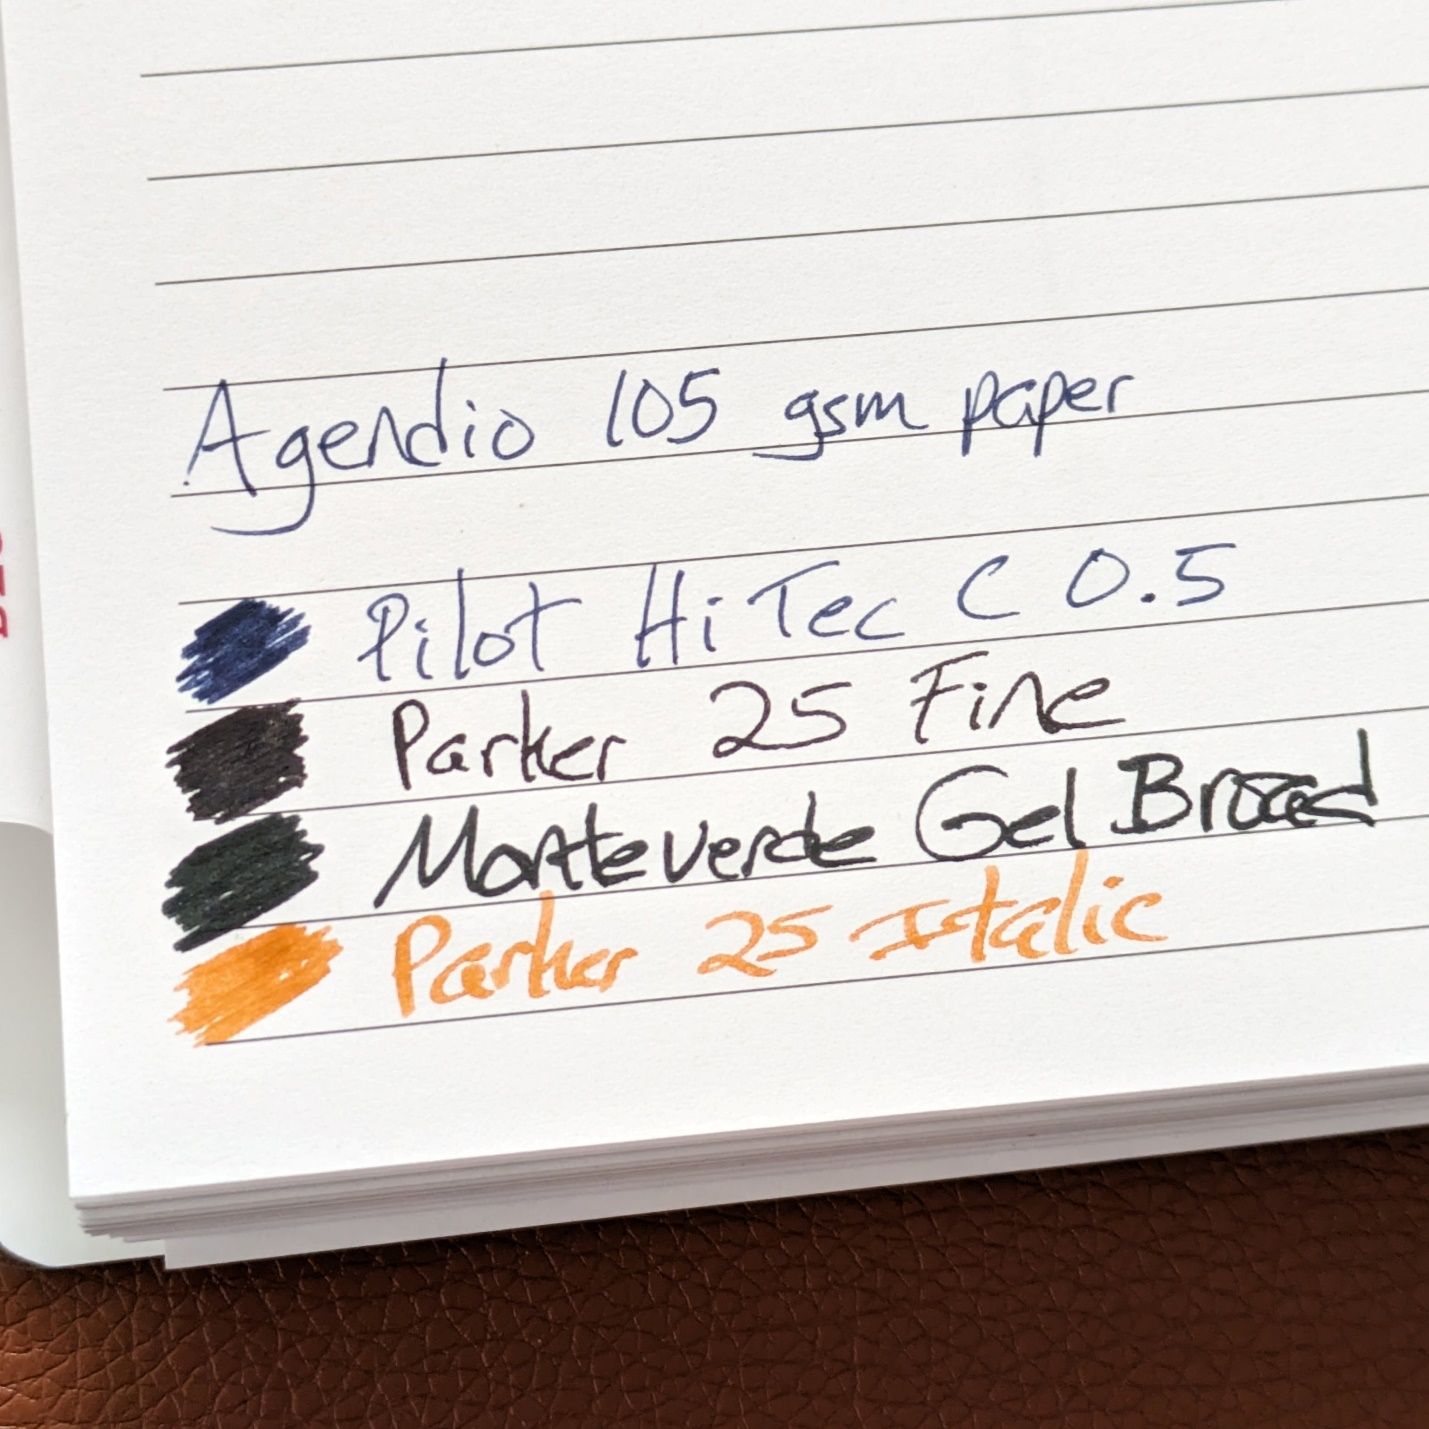 Agendio 105 gsm paper
Pilot Hi Tec C 0.5
Parker 25 Fine
Monteverde Gel Broad
Parker 25 Italic